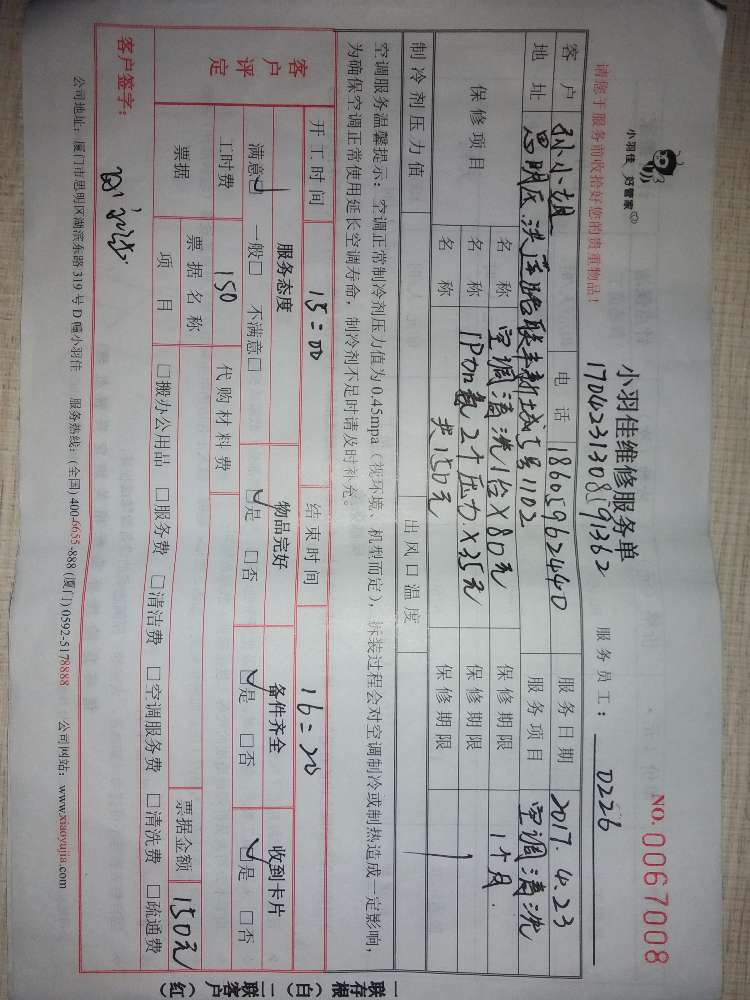 小羽佳 好管家
小羽佳维修服务单
NO. 0067008
请您于服务前收拾好您的贵重物品!
服务员工: 0226
客户 孙小姐 电话 18605962440 服务日期 2017.4.23
地址 思明区 联丰新城5号1102 服务项目 空调清洗
保修项目 名称 空调清洗1台×80元 保修期限 1个月.
名称 1P加氨2个压力×35元 保修期限
名称 共150元 保修期限
制冷剂压力值 出风口温度
空调服务温馨提示:空调正常制冷剂压力值为0.45mpa(视环境、机型而定),拆装过程会对空调制冷或制热造成一定影响,
为确保空调正常使用延长空调寿命,制冷剂不足时请及时补充。
开工时间 15:00 结束时间 16:20
客户评定 服务态度 物品完好 备件齐全 收到卡片
满意☑ 一般□ 不满意□ ☑是 □否 ☑是 □否 ☑是 □否
工时费 150 代购材料费
票据 票据名称 票据金额 150元
项目 □搬办公用品 □服务费 □清洁费 □空调服务费 □清洗费 □疏通费
客户签字:
公司地址:厦门市思明区湖滨东路319号D幢小羽佳 服务热线:(全国)400-6655-888 (厦门)0592-5178888 公司网站:www.xiaoyujia.com
一联存根(白) 二联客户(红)